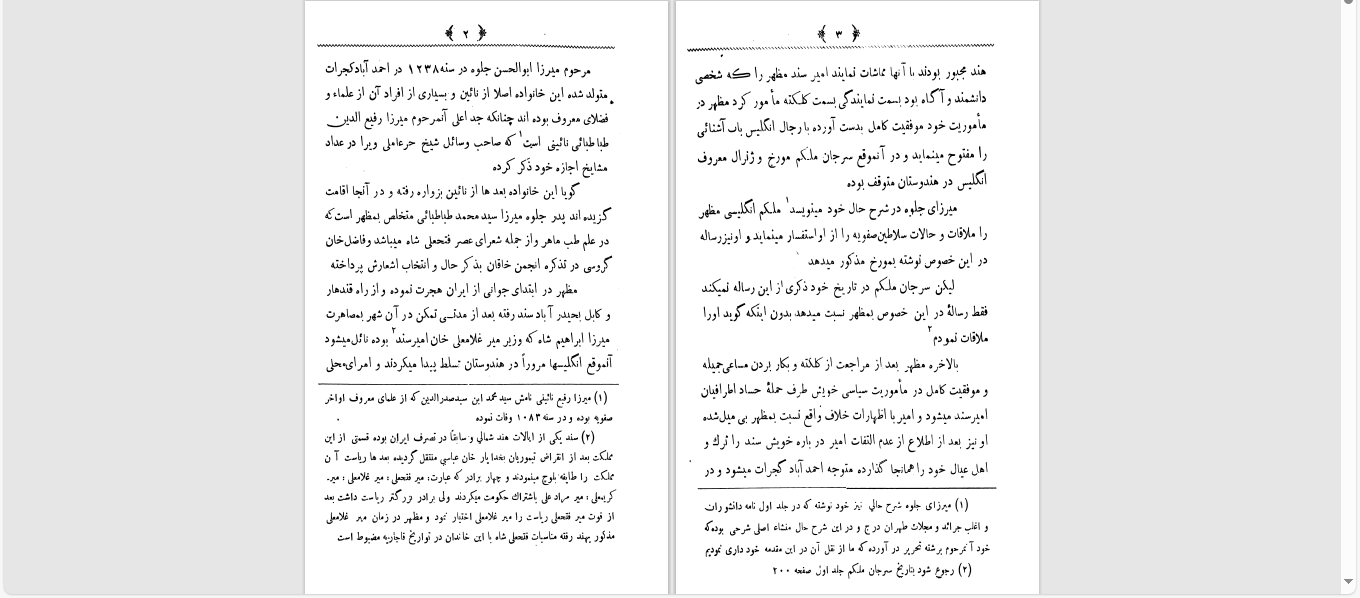 ﴿ ٢ ﴾
مرحوم میرزا ابوالحسن جلوه در سنه ١٢٣٨ در احمد آبادکجرات
متولد شده این خانواده اصلا از نائین و بسیاری از افراد آن از علماء و
فضلای معروف بوده اند چنانکه جد اعلی آنمرحوم میرزا رفیع الدین
طباطبائی نائینی است١ که صاحب وسائل شیخ حرعاملی ویرا در عداد
مشایخ اجازه خود ذکر کرده
گویا این خانواده بعد ها از نائین بزواره رفته و در آنجا اقامت
گزیده اند پدر جلوه میرزا سیدمحمد طباطبائی متخلص بمظهر است که
در علم طب ماهر واز جمله شعرای عصر فتحعلی شاه میباشد وفاضل خان
گروسی در تذکره انجمن خاقان بذکر حال و انتخاب اشعارش پرداخته
مظهر در ابتدای جوانی از ایران هجرت نموده و از راه قندهار
و کابل بحیدر آباد سند رفته بعد از مدتی تمکن در آن شهر بمصاهرت
میرزا ابراهیم شاه که وزیر میر غلامعلی خان امیرسند٢ بوده نائل میشود
آنموقع انگلیسها مروراً در هندوستان تسلط پیدا میکردند و امرای محلی
(١) میرزا رفیع نائینی نامش سید محمد ابن سیدصدرالدین که از علمای معروف اواخر
صفویه بوده و در سنه ١٠٨٣ وفات نموده
(٢) سند یکی از ایالات هند شمالی و سابقاً در تصرف ایران بوده قسمتی از این
مملکت بعد از انقراض تیموریان بخدایار خان عباسی منتقل گردیده بعد ها ریاست آن
مملکت را طایفه بلوچ مینمودند و چهار برادر که عبارت، میر فتحعلی، میر غلامعلی، میر.
کرمعلی، میر مراد علی باشتراك حکومت میکردند ولی برادر بزرگتر ریاست داشت بعد
از فوت میر فتحعلی ریاست را میر غلامعلی اختیار نمود و مظهر در زمان میر غلامعلی
مذکور بهند رفته مناسبات فتحعلی شاه با این خاندان در تواریخ قاجاریه مضبوط است
﴿ ٣ ﴾
هند مجبور بودند با آنها مماشات نمایند امیر سند مظهر را که شخصی
دانشمند و آگاه بود بسمت نمایندگی بسمت کلکته مأمور کرد مظهر در
مأموریت خود موفقیت کامل بدست آورده با رجال انگلیس باب آشنائی
را مفتوح مینماید و در آنموقع سرجان ملکم مورخ و ژنرال معروف
انگلیس در هندوستان متوقف بوده
میرزای جلوه در شرح حال خود مینویسد١ ملکم انگلیسی مظهر
را ملاقات و حالات سلاطین صفویه را از او استفسار مینماید و اونیز رساله
در این خصوص نوشته بمورخ مذکور میدهد
لیکن سرجان ملکم در تاریخ خود ذکری از این رساله نمیکند
فقط رسالهٔ در این خصوص بمظهر نسبت میدهد بدون اینکه گوید اورا
ملاقات نمودم٢
بالاخره مظهر بعد از مراجعت از کلکته و بکار بردن مساعی جمیله
و موفقیت کامل در مأموریت سیاسی خویش طرف حملهٔ حساد اطرافیان
امیرسند میشود و امیر با اظهارات خلاف واقع نسبت بمظهر بی میل شده
او نیز بعد از اطلاع از عدم التفات امیر در باره خویش سند را ترك و
اهل عیال خود را همانجا گذارده متوجه احمد آباد گجرات میشود و در
(١) میرزای جلوه شرح حالی نیز خود نوشته که در جلد اول نامه دانشوران
و اغلب جرائد و مجلات طهران درج و در این شرح حال منشاء اصلی شرحی بوده که
خود آنمرحوم برشته تحریر در آورده که ما از نقل آن در این مقدمه خود داری نمودیم
(٢) رجوع شود بتاریخ سرجان ملکم جلد اول صفحه ٢٠٠